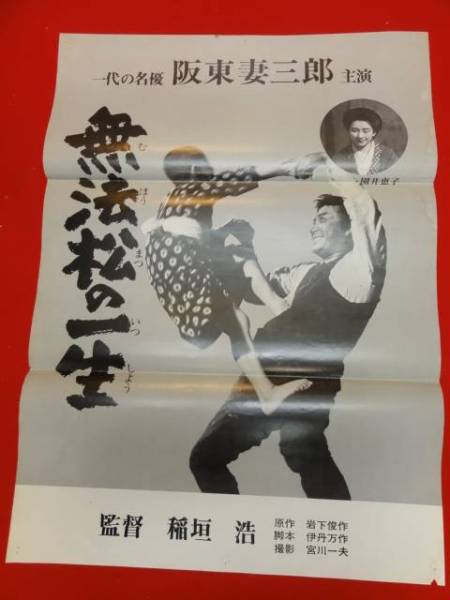 一代の名優 阪東妻三郎 主演
無法松の一生
む ほう まつ いつ しよう
園井恵子
監督 稲垣 浩
原作 岩下俊作
脚本 伊丹万作
撮影 宮川一夫